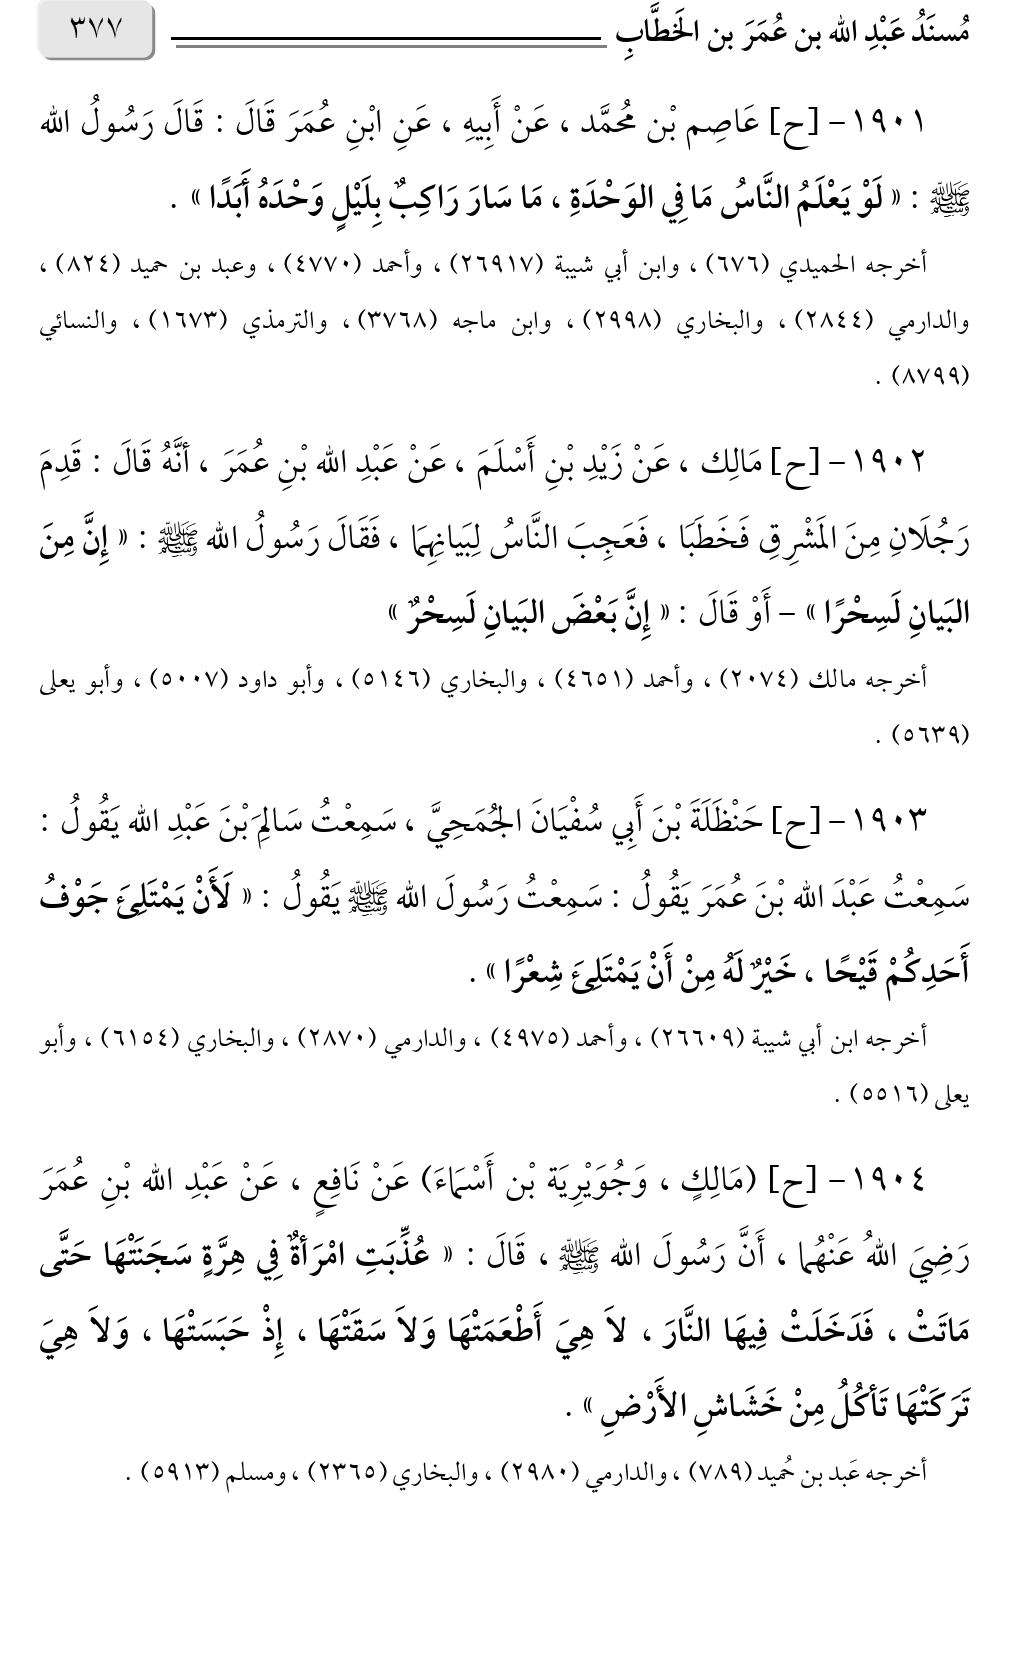 مُسنَدُ عَبْدِ الله بن عُمَرَ بن الخَطَّابِ ٣٧٧
١٩٠١- [ح] عَاصِم بْن مُحمَّد ، عَنْ أَبِيهِ ، عَنِ ابْنِ عُمَرَ قَالَ : قَالَ رَسُولُ الله
ﷺ : « لَوْ يَعْلَمُ النَّاسُ مَا فِي الوَحْدَةِ ، مَا سَارَ رَاكِبٌ بِلَيْلٍ وَحْدَهُ أَبَدًا » .
أخرجه الحميدي (٦٧٦) ، وابن أبي شيبة (٢٦٩١٧) ، وأحمد (٤٧٧٠) ، وعبد بن حميد (٨٢٤) ،
والدارمي (٢٨٤٤) ، والبخاري (٢٩٩٨) ، وابن ماجه (٣٧٦٨) ، والترمذي (١٦٧٣) ، والنسائي
(٨٧٩٩) .
١٩٠٢- [ح] مَالِك ، عَنْ زَيْدِ بْنِ أَسْلَمَ ، عَنْ عَبْدِ الله بْنِ عُمَرَ ، أنَّهُ قَالَ : قَدِمَ
رَجُلَانِ مِنَ المَشْرِقِ فَخَطَبَا ، فَعَجِبَ النَّاسُ لِبَيانِهِمَا ، فَقَالَ رَسُولُ الله ﷺ : « إِنَّ مِنَ
البَيانِ لَسِحْرًا » – أَوْ قَالَ : « إِنَّ بَعْضَ البَيانِ لَسِحْرٌ »
أخرجه مالك (٢٠٧٤) ، وأحمد (٤٦٥١) ، والبخاري (٥١٤٦) ، وأبو داود (٥٠٠٧) ، وأبو يعلى
(٥٦٣٩) .
١٩٠٣- [ح] حَنْظَلَةَ بْنَ أَبِي سُفْيَانَ الجُمَحِيَّ ، سَمِعْتُ سَالِمَ بْنَ عَبْدِ الله يَقُولُ :
سَمِعْتُ عَبْدَ الله بْنَ عُمَرَ يَقُولُ : سَمِعْتُ رَسُولَ الله ﷺ يَقُولُ : « لَأَنْ يَمْتَلِئَ جَوْفُ
أَحَدِكُمْ قَيْحًا ، خَيْرٌ لَهُ مِنْ أَنْ يَمْتَلِئَ شِعْرًا » .
أخرجه ابن أبي شيبة (٢٦٦٠٩) ، وأحمد (٤٩٧٥) ، والدارمي (٢٨٧٠) ، والبخاري (٦١٥٤) ، وأبو
يعلى (٥٥١٦) .
١٩٠٤- [ح] (مَالِكٍ ، وَجُوَيْرِيَة بْن أَسْمَاءَ) عَنْ نَافِعٍ ، عَنْ عَبْدِ الله بْنِ عُمَرَ
رَضِيَ اللهُ عَنْهُما ، أَنَّ رَسُولَ الله ﷺ ، قَالَ : « عُذِّبَتِ امْرَأةٌ فِي هِرَّةٍ سَجَنَتْهَا حَتَّى
مَاتَتْ ، فَدَخَلَتْ فِيهَا النَّارَ ، لاَ هِيَ أَطْعَمَتْهَا وَلاَ سَقَتْهَا ، إِذْ حَبَسَتْهَا ، وَلاَ هِيَ
تَرَكَتْهَا تَأكُلُ مِنْ خَشَاشِ الأَرْضِ » .
أخرجه عَبد بن حُميد (٧٨٩) ، والدارمي (٢٩٨٠) ، والبخاري (٢٣٦٥) ، ومسلم (٥٩١٣) .